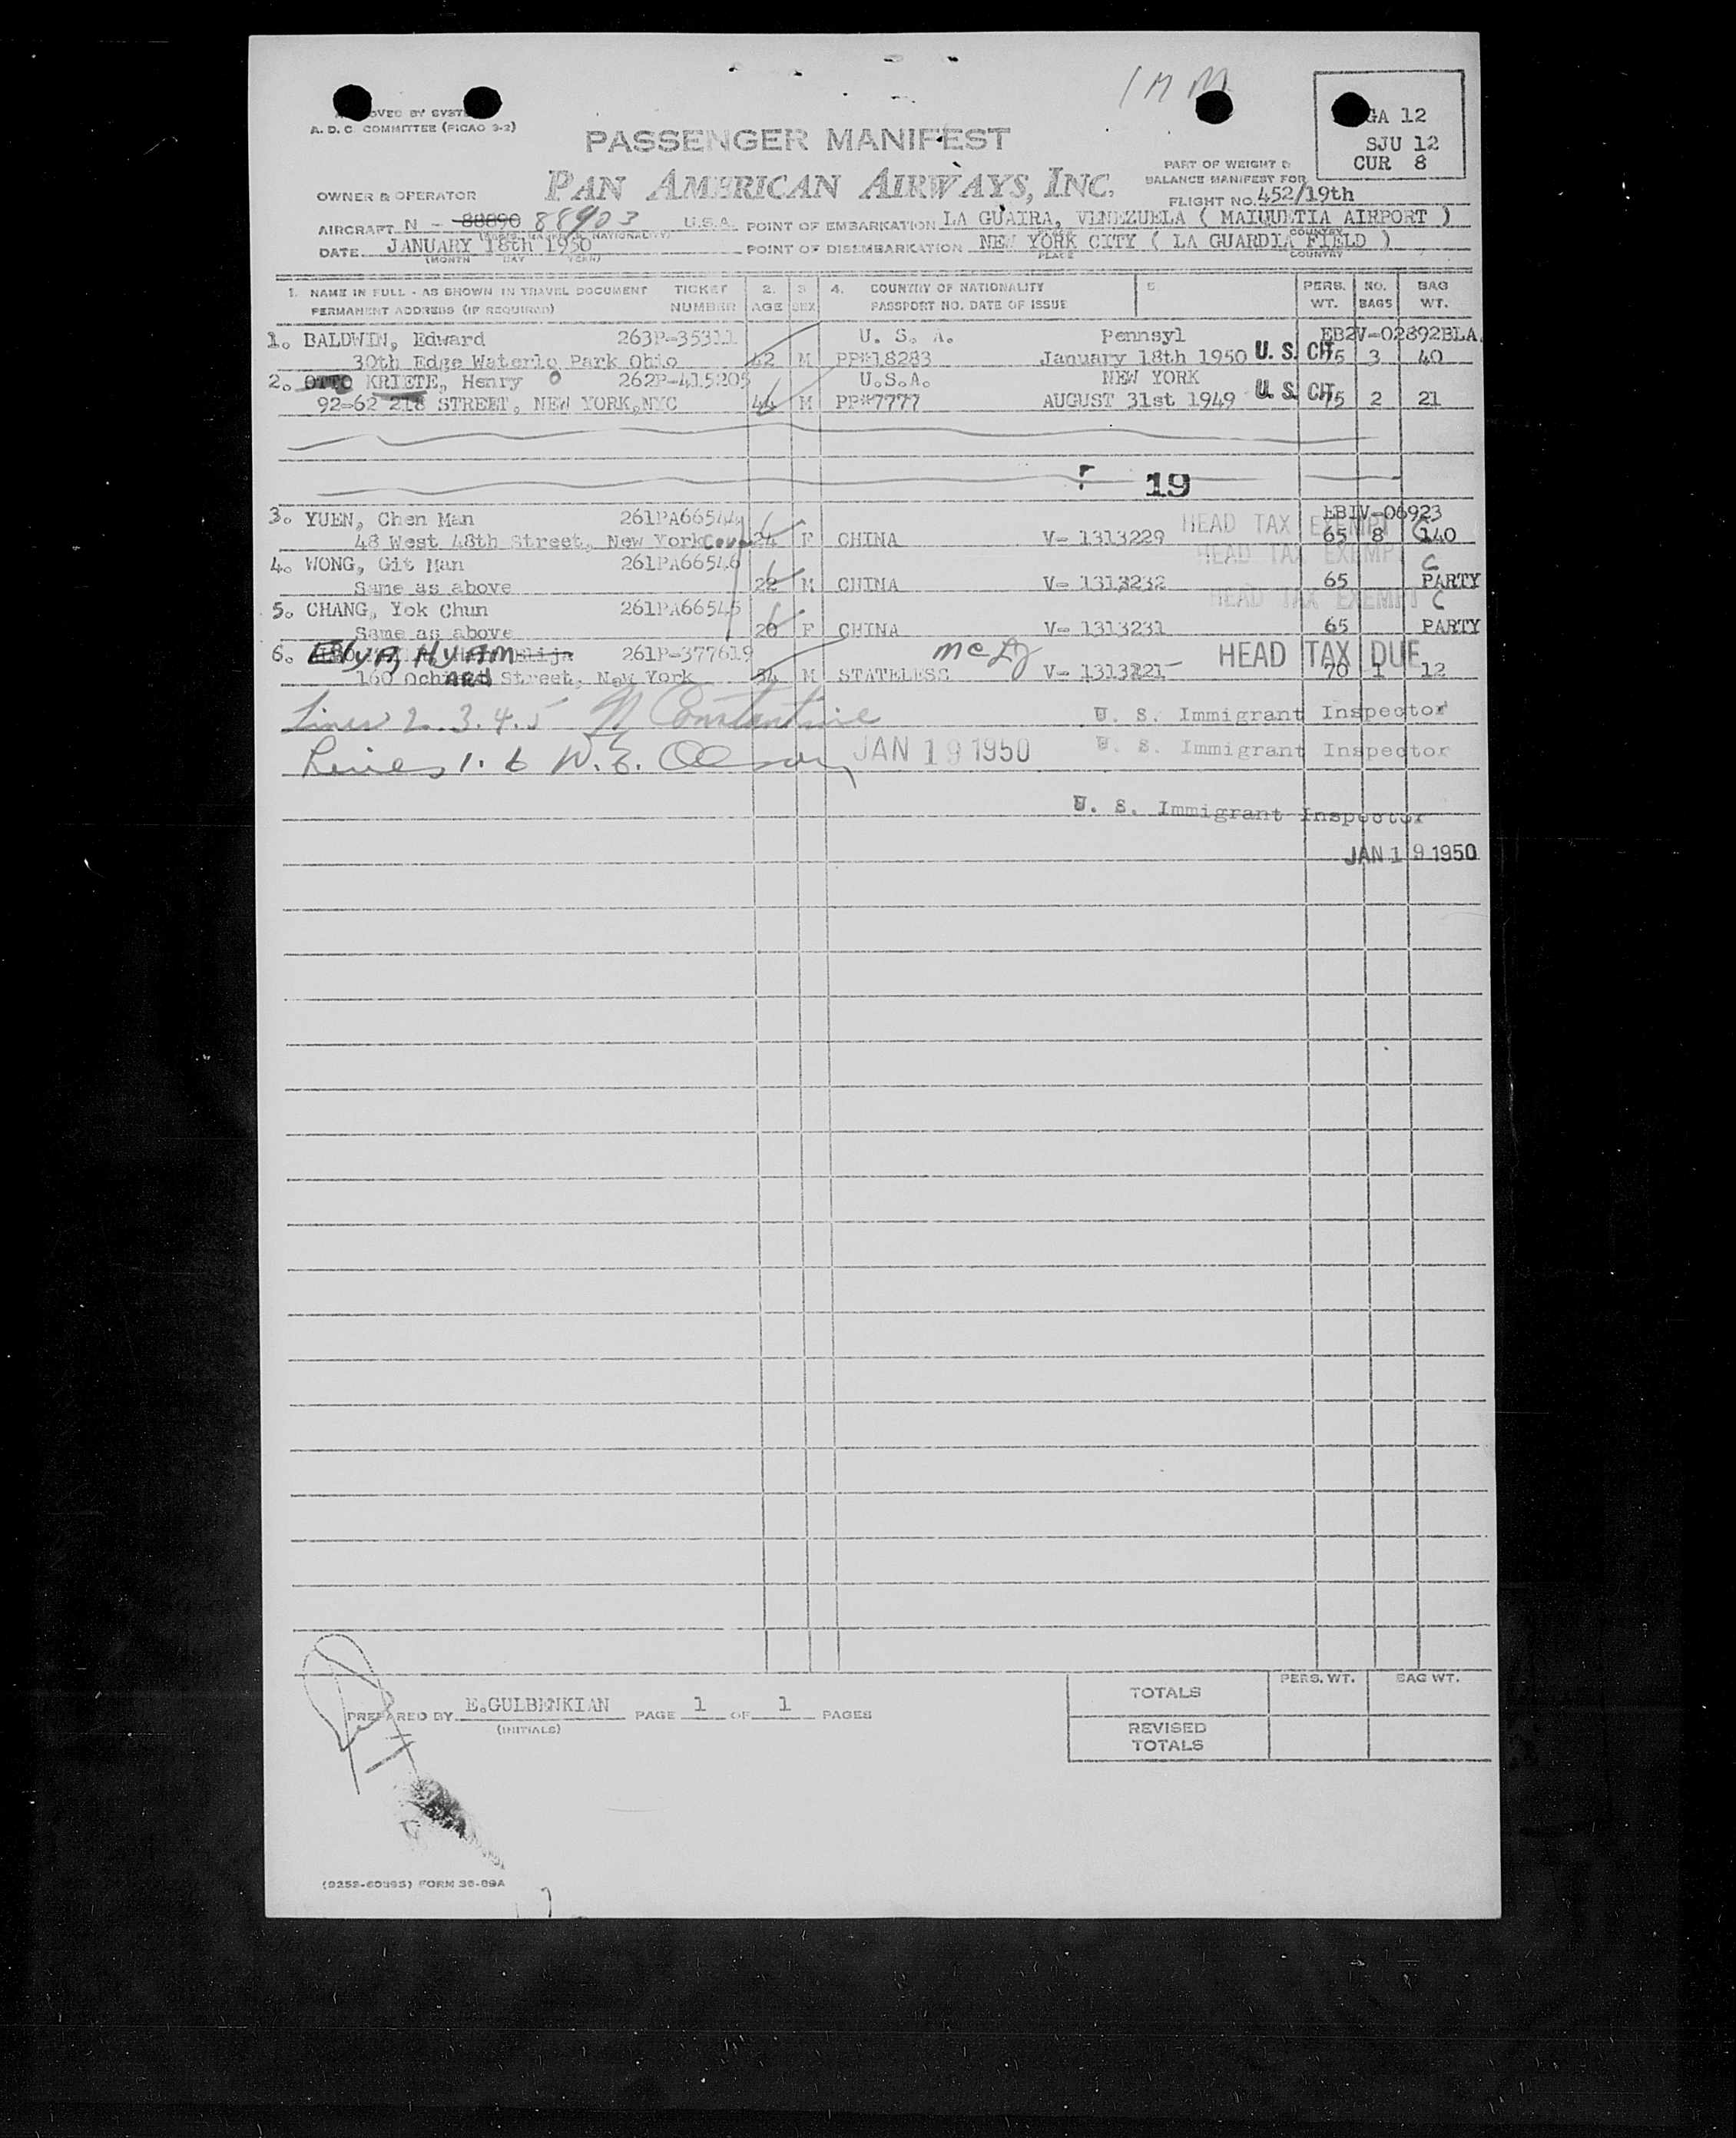 1 M M
OVED BY SYST
A. D. C. COMMITTEE (PICAO 9-2)
GA 12
SJU 12
CUR 8
PASSENGER MANIFEST
PAN AMERICAN AIRWAYS, INC.
PART OF WEIGHT &
BALANCE MANIFEST FOR
FLIGHT NO. 452/19th
OWNER & OPERATOR
AIRCRAFT N - 88890 88903 U.S.A. POINT OF EMBARKATION LA GUAIRA, VENEZUELA ( MAIQUETIA AIRPORT )
DATE JANUARY 18th 1950 POINT OF DISEMBARKATION NEW YORK CITY ( LA GUARDIA FIELD )
(MONTH DAY YEAR) PLACE COUNTRY
1. NAME IN FULL - AS SHOWN IN TRAVEL DOCUMENT TICKET 2. 3 4. COUNTRY OF NATIONALITY 5. PERS. NO. BAG
PERMANENT ADDRESS (IF REQUIRED) NUMBER AGE SEX PASSPORT NO. DATE OF ISSUE WT. BAGS WT.
1. BALDWIN, Edward 263P-35311 U. S. A. Pennsyl EB2V-02892BLA
30th Edge Waterlo Park Ohio 42 M PP#18283 January 18th 1950 U. S. CIT. 75 3 40
2. OTTO KRIETE, Henry O 262P-415205 U.S.A. NEW YORK
92-62 218 STREET, NEW YORK,NYC 44 M PP#7777 AUGUST 31st 1949 U. S. CIT. 75 2 21
19
3. YUEN, Chen Man 261PA66544 HEAD TAX EXEMPT EBIV-06923
48 West 48th Street, New York 24 F CHINA V- 1313229 65 8 140
4. WONG, Git Man 261PA66546 HEAD TAX EXEMPT C
Same as above 22 M CHINA V- 1313232 65 PARTY
5. CHANG, Yok Chun 261PA66545 HEAD TAX EXEMPT C
Same as above 20 F CHINA V- 1313231 65 PARTY
6. ELIYA, HYAM Elija 261P-377619 HEAD TAX DUE
160 Street, New York 34 M STATELESS V- 1313221 70 1 12
Lines 2. 3. 4. 5 N Constantine U. S. Immigrant Inspector
Lines 1. 6 W. E. Olson JAN 19 1950 U. S. Immigrant Inspector
U. S. Immigrant Inspector
JAN 19 1950
TOTALS PERS. WT. BAG WT.
PREPARED BY E.GULBENKIAN PAGE 1 OF 1 PAGES
(INITIALS)
REVISED
TOTALS
(9252-60393) FORM 30-09A